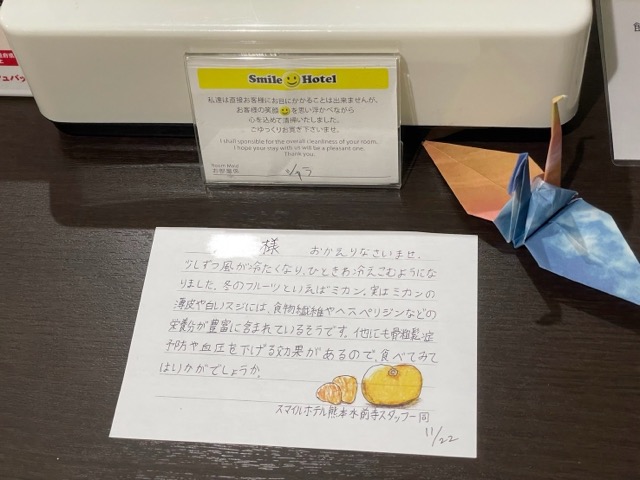 Smile Hotel
私達は直接お客様にお目にかかることは出来ませんが、
お客様の笑顔を思い浮かべながら
心を込めて清掃いたしました。
ごゆっくりお寛ぎ下さいませ。
I shall sponsible for the overall cleanliness of your room.
I hope your stay with us will be a pleasant one.
Thank you.
Room Maid
お部屋係
様 おかえりなさいませ。
少しずつ風が冷たくなり、ひときわ冷えこむようにな
りました。冬のフルーツといえばミカン。実はミカンの
薄皮や白いスジには、食物繊維やヘスペリジンなどの
栄養分が豊富に含まれているそうです。他にも骨粗鬆症
予防や血圧を下げる効果があるので、食べてみて
はいかがでしょうか。
スマイルホテル熊本水前寺スタッフ一同
11/22